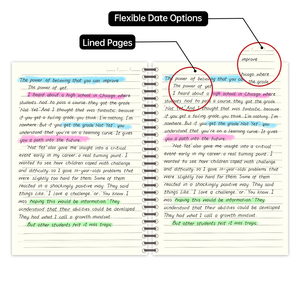 Flexible Date Options
Lined Pages
improve
Chicago where
the grade
The power of believing that you can improve
The power of yet.
I heard about a high school in Chicago where
students had to pass a course, they got the grade
"Not Yet." And I thought that was fantastic, because
if you get a failing grade, you think, I'm nothing, I'm
nowhere. But if you get the grade "Not Yet", you
understand that you're on a learning curve. It gives
you a path into the future.
"Not Yet" also gave me insight into a critical
event early in my career, a real turning point. I
wanted to see how children coped with challenge
and difficulty, so I gave 10-year-olds problems that
were slightly too hard for them. Some of them
reacted in a shockingly positive way. They said
things like, "I love a challenge," or, "You know, I
was hoping this would be informative." They
understood that their abilities could be developed.
They had what I call a growth mindset.
But other students felt it was tragic
The power of believing that you can improve
The power of yet.
I heard about a high school in Chicago where
students had to pass a course, they got the grade
"Not Yet." And I thought that was fantastic, because
if you get a failing grade, you think, I'm nothing, I'm
nowhere. But if you get the grade "Not Yet", you
understand that you're on a learning curve. It gives
you a path into the future.
"Not Yet" also gave me insight into a critical
event early in my career, a real turning point. I
wanted to see how children coped with challenge
and difficulty, so I gave 10-year-olds problems that
were slightly too hard for them. Some of them
reacted in a shockingly positive way. They said
things like, "I love a challenge," or, "You know, I
was hoping this would be informative." They
understood that their abilities could be developed.
They had what I call a growth mindset.
But other students felt it was tragic